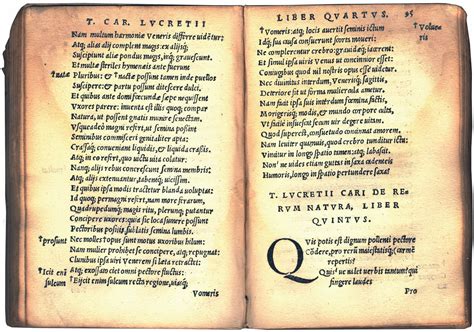 T. CAR. LVCRETII
Nam multum harmoniæ Veneris differre uidẽtur;
Atq; alias alij complent magis ex alijsq;
Succipiunt aliæ pondus magis, inq; grauescunt.
Et multæ steriles hymenæis ante fuerunt
†natæ Pluribus: & †nactæ possunt tamen unde puellos
Suscipere: & partu possunt ditescere dulci.
Et quibus ante domi fœcundæ sæpe nequissent
Vxores parere: inuenta est illis quoque compar
Natura, ut possent gnatis munire senectam.
Vsqueadeo magni refert, ut semina possint
Seminibus commisceri genitaliter apta:
Crassaq; conueniant liquidis, & liquida crassis.
Atq; in eo refert, quo uictu uita colatur:
Nanq; alijs rebus concrescunt semina membris,
Atq; alijs extenuantur, tabentq; uicissim.
Et quibus ipsa modis tractetur blanda uoluptas
Id quoque permagni refert, nam more ferarum,
Quadrupedumq; magis ritu, plerunq; putantur
Concipere uxores: quia sic loca sumere possunt
Pectoribus positis sublatis semina lumbis.
†prosunt Nec molles †opus sunt motus uxoribus hilum:
Nam mulier prohibet se concipere, atq; repugnat
Clunibus ipsa uiri Venerem si læta retractet:
Atq; exossato ciet omni pectore fluctus:
†Icit enĩ sulcum †Eijcit enim sulcum recta regione, uiaq;
Vomeris
LIBER QVARTVS. 95
†Vomeris: atq; locis auertit seminis ictum: †Vomeris
Idq; sua causa consuerunt scorta moueri:
Ne complerentur crebro: grauidæq; iacerent:
Et simul ipsa uiris Venus ut concinnior esset:
Coniugibus quod nil nostris opus esse uidetur.
Nec diuinitus interdum, Venerisq; sagittis,
Deteriore fit ut forma muliercula ametur.
Nam facit ipsa suis interdum fœmina factis,
Morigerisq; modis, & mundo corpore cultu,
Vt facile insuescat secum uir degere uitam.
Quod superest, consuetudo concinnat amorem.
Nam leuiter quamuis, quod crebro tunditur ictu:
Vincitur in longo spatio tamen, atq; labascit.
Nonne uides etiam guttas in saxa cadentis
Humoris, longo in spatio pertundere saxa?
T. LVCRETII CARI DE RE-
RVM NATVRA, LIBER
QVINTVS.
Quis potis est dignum pollenti pectore
Cõdere, pro rerũ maiestatiq; carmẽ
repertis?
Quis'ue ualet uerbis tantum? qui
fingere laudes
Pro